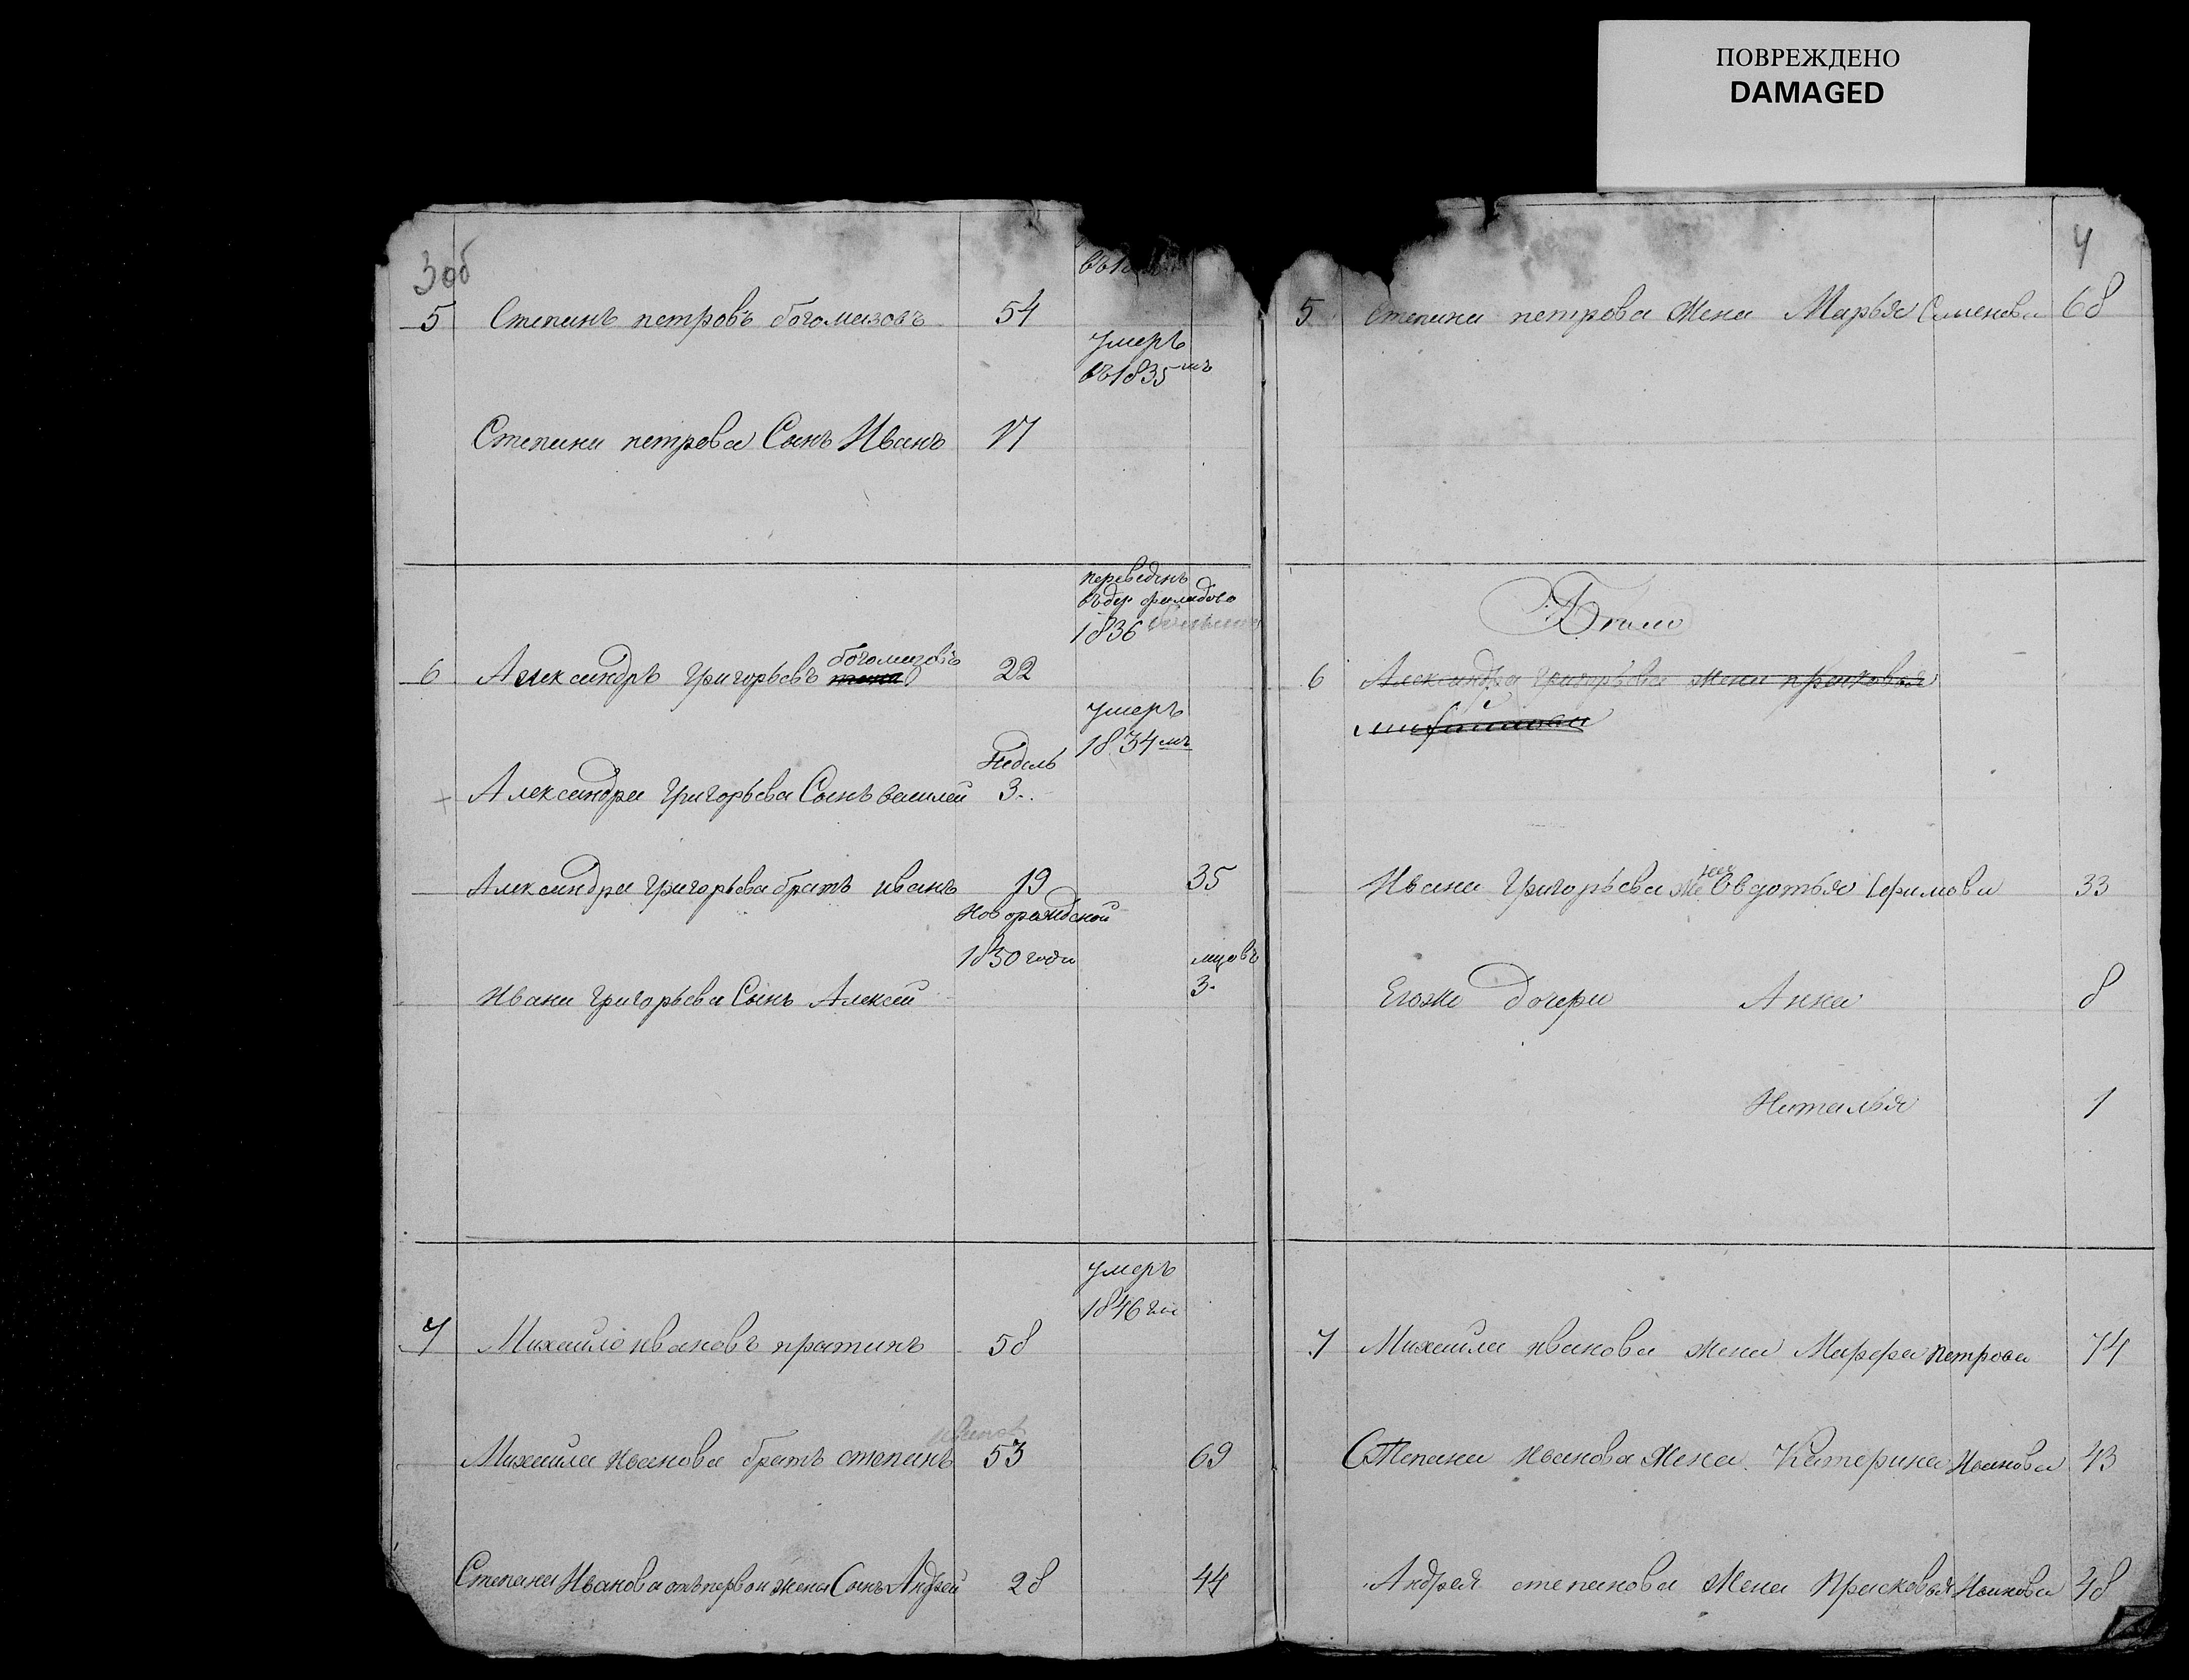 ПОВРЕЖДЕНО
DAMAGED
3 об
5 Степанъ петровъ богомазовъ 54
умеръ
въ 1835мъ
Степана петрова Сынъ Иванъ 17
переведенъ
въ дер
1836
богомазовъ
6 Александръ Григорьевъ 22
умеръ
1834мъ
Недель
Александра Григорьева Сынъ василей 3.
Александра Григорьева братъ иванъ 19 35
Новорожденой
1850 года мцовъ
Ивана Григорьева Сынъ Алексей 3.
умеръ
1846 го
7 Михаило ивановъ пратинъ 58
Михаила иванова братъ степанъ 53 69
Степана Иванова отъ первой жены Сынъ Андрей 28 44
4
5 Степана петрова жена Марья Семенова 68
6 Александра Григорьева жена прасковья
Ивана Григорьева жена Овдотья Ефимова 33
Егоже дочери Анна 8
Наталья 1
7 Михаила иванова жена Марфа петрова 74
Степана Иванова жена Катерина Иванова 43
Андрея степанова жена Прасковья Иванова 48